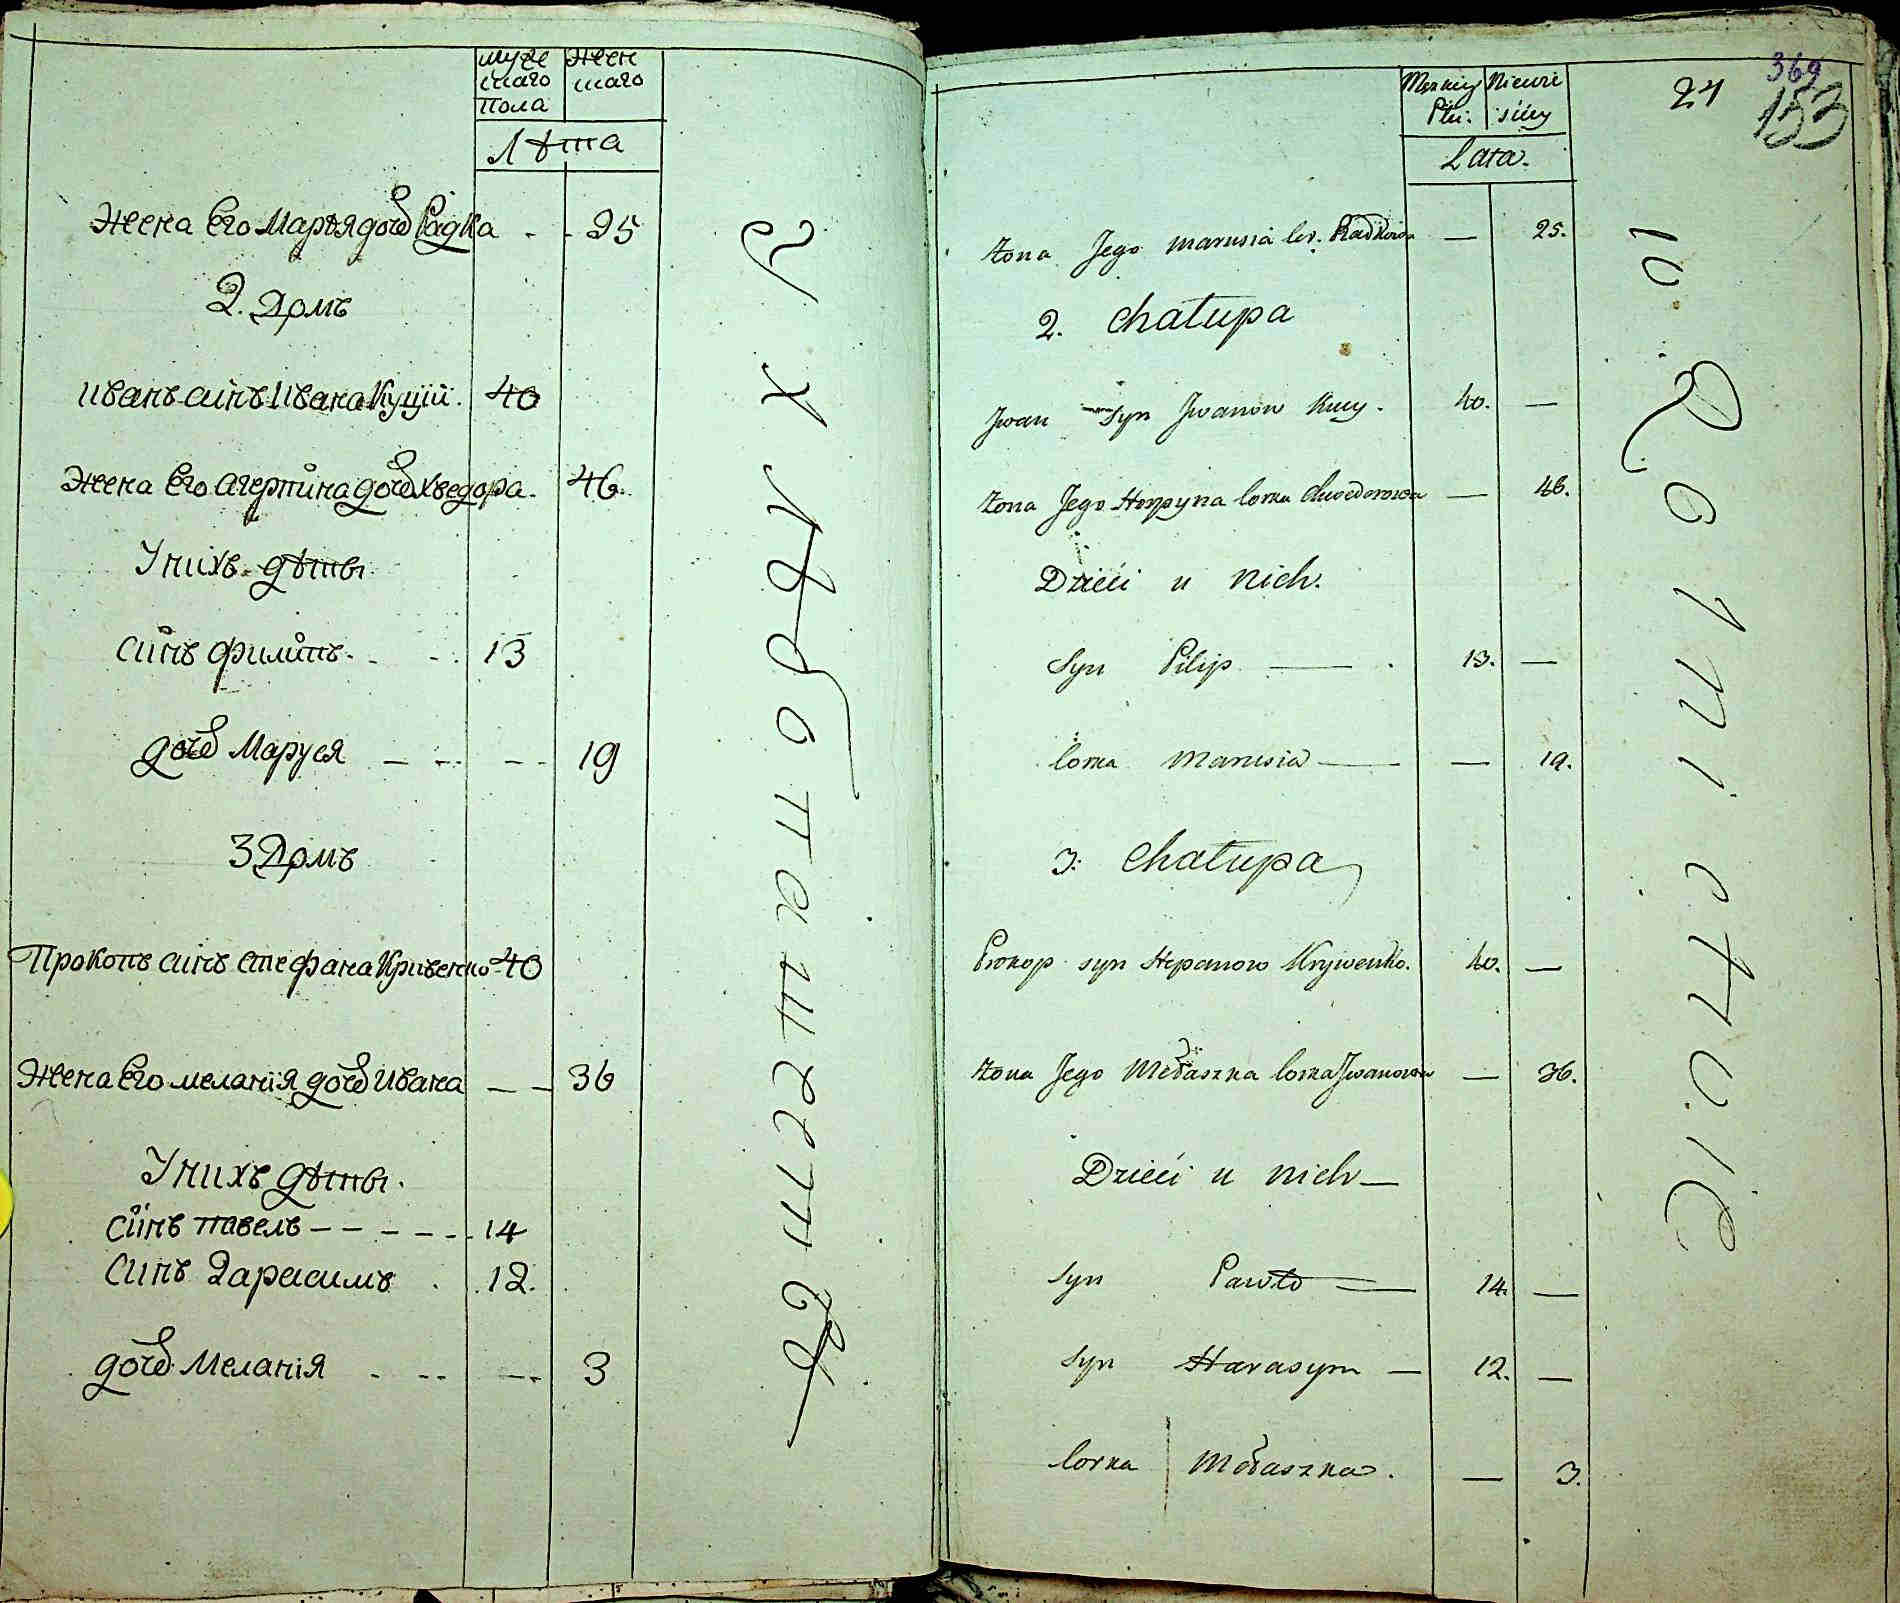 муже
скаго
пола
жен
скаго
Лѣта
Жена Его Марѣя дочь Радка - - 25
2. Домъ
Иванъ синъ Ивана Куций. 40
Жена Его Агерпина дочь Хведора. 46.
У нихъ дѣты
Синъ Филипъ. 13
дочь Маруся 19
3 Домъ
Прокопъ синъ Стефана Кривенко 40
Жена Его Меланія дочь Ивана — — 36
У нихъ дѣты.
Синъ Павелъ - - - - - 14
Синъ Гарасимъ . 12.
дочь Меланія 3
Męzkiey
Płci.
Niewie
sciey
Lata.
24
369
153
Żona Jego Marusia cor. Radkowa — 25.
2. Chałupa
Jwan Syn Jwanow Kucy. 40. —
Żona Jego Horpyna Corka Chwedorowa — 46.
Dzieci u nich.
Syn Pilip — 13. —
Corka Marusia — — 19.
3. Chałupa
Prokop syn Stepanow Krywenko. 40. —
Żona Jego Mełaszka Corka Jwanowa — 36.
Dzieci u nich —
Syn Pawło — 14. —
Syn Harasym — 12. —
Corka Mełaszka. — 3.